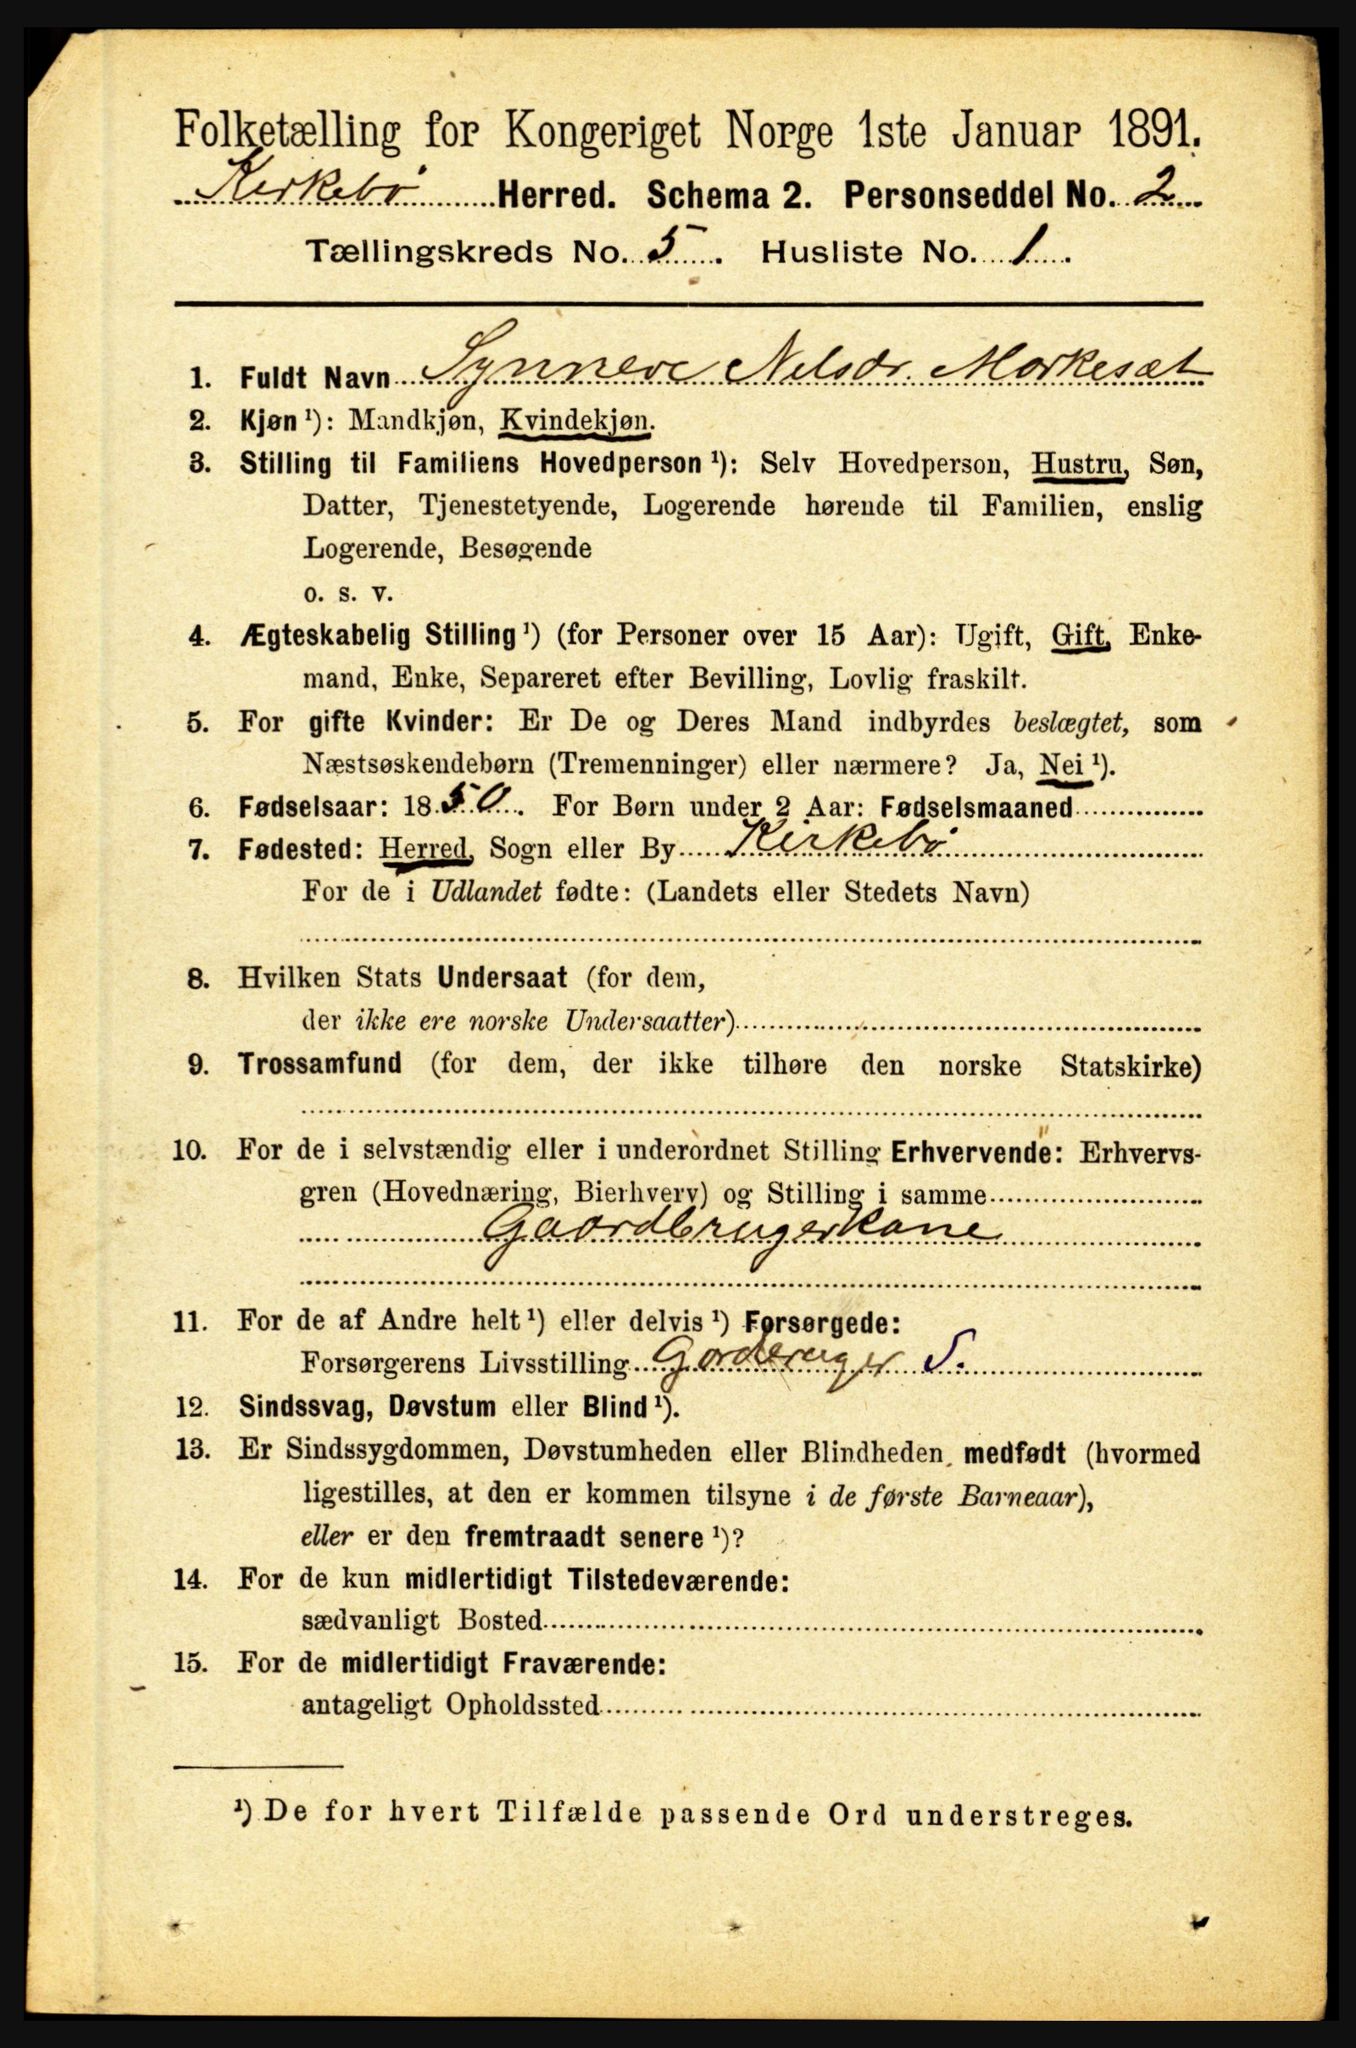 Folketælling for Kongeriget Norge 1ste Januar 1891.
Kirkebø Herred. Schema 2. Personseddel No. 2
Tællingskreds No. 5. Husliste No. 1.
1. Fuldt Navn Synneve Nilsdr. Morkesæt
2. Kjøn ¹): Mandkjøn, Kvindekjøn.
3. Stilling til Familiens Hovedperson ¹): Selv Hovedperson, Hustru, Søn,
Datter, Tjenestetyende, Logerende hørende til Familien, enslig
Logerende, Besøgende
o. s. v.
4. Ægteskabelig Stilling ¹) (for Personer over 15 Aar): Ugift, Gift, Enke-
mand, Enke, Separeret efter Bevilling, Lovlig fraskilt.
5. For gifte Kvinder: Er De og Deres Mand indbyrdes beslægtet, som
Næstsøskendebørn (Tremenninger) eller nærmere? Ja, Nei ¹).
6. Fødselsaar: 1850. For Børn under 2 Aar: Fødselsmaaned
7. Fødested: Herred, Sogn eller By Kirkebø
For de i Udlandet fødte: (Landets eller Stedets Navn)
8. Hvilken Stats Undersaat (for dem,
der ikke ere norske Undersaatter)
9. Trossamfund (for dem, der ikke tilhøre den norske Statskirke)
10. For de i selvstændig eller i underordnet Stilling Erhvervende: Erhvervs-
gren (Hovednæring, Bierhverv) og Stilling i samme
Gaardbrugerkone
11. For de af Andre helt ¹) eller delvis ¹) Forsørgede:
Forsørgerens Livsstilling Gordbruger S.
12. Sindssvag, Døvstum eller Blind ¹).
13. Er Sindssygdommen, Døvstumheden eller Blindheden medfødt (hvormed
ligestilles, at den er kommen tilsyne i de første Barneaar),
eller er den fremtraadt senere ¹)?
14. For de kun midlertidigt Tilstedeværende:
sædvanligt Bosted
15. For de midlertidigt Fraværende:
antageligt Opholdssted
¹) De for hvert Tilfælde passende Ord understreges.